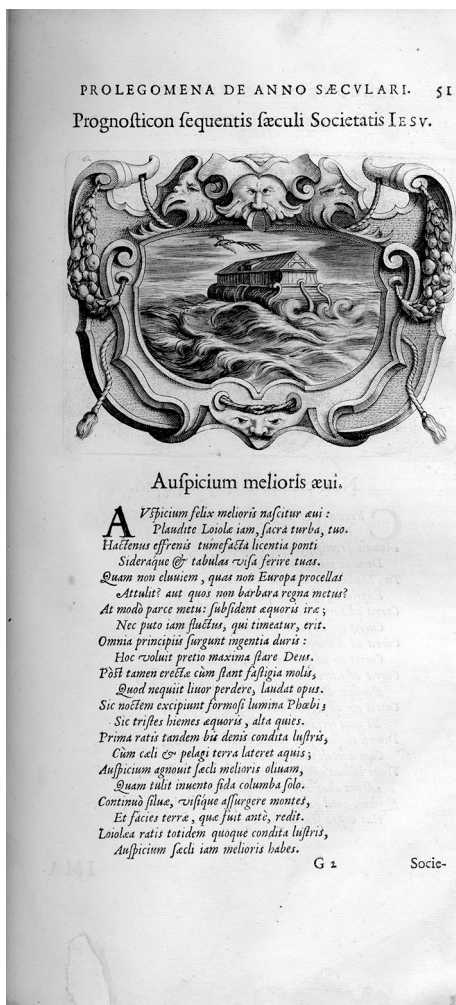 PROLEGOMENA DE ANNO SÆCVLARI. 51
Prognosticon ſequentis ſæculi Societatis IESV.
Auſpicium melioris æui.
AVſpicium felix melioris naſcitur æui:
Plaudite Loiolæ iam, ſacra turba, tuo.
Hactenus effrenis tumefacta licentia ponti
Sideraque & tabulas viſa ferire tuas.
Quam non eluuiem, quas non Europa procellas
Attulit? aut quos non barbara regna metus?
At modò parce metu: ſubſident æquoris iræ;
Nec puto iam fluctus, qui timeatur, erit.
Omnia principiis ſurgunt ingentia duris:
Hoc voluit pretio maxima ſtare Deus.
Pòſt tamen erectæ cùm ſtant faſtigia molis,
Quod nequiit liuor perdere, laudat opus.
Sic noctem excipiunt formoſi lumina Phœbi;
Sic triſtes hiemes æquoris, alta quies.
Prima ratis tandem bis denis condita luſtris,
Cùm cæli & pelagi terra lateret aquis;
Auſpicium agnouit ſæcli melioris oliuam,
Quam tulit inuento fida columba ſolo.
Continuò ſiluæ, viſique aſſurgere montes,
Et facies terræ, quæ fuit antè, redit.
Loiolæa ratis totidem quoque condita luſtris,
Auſpicium ſæcli iam melioris habes.
G 2 Socie-